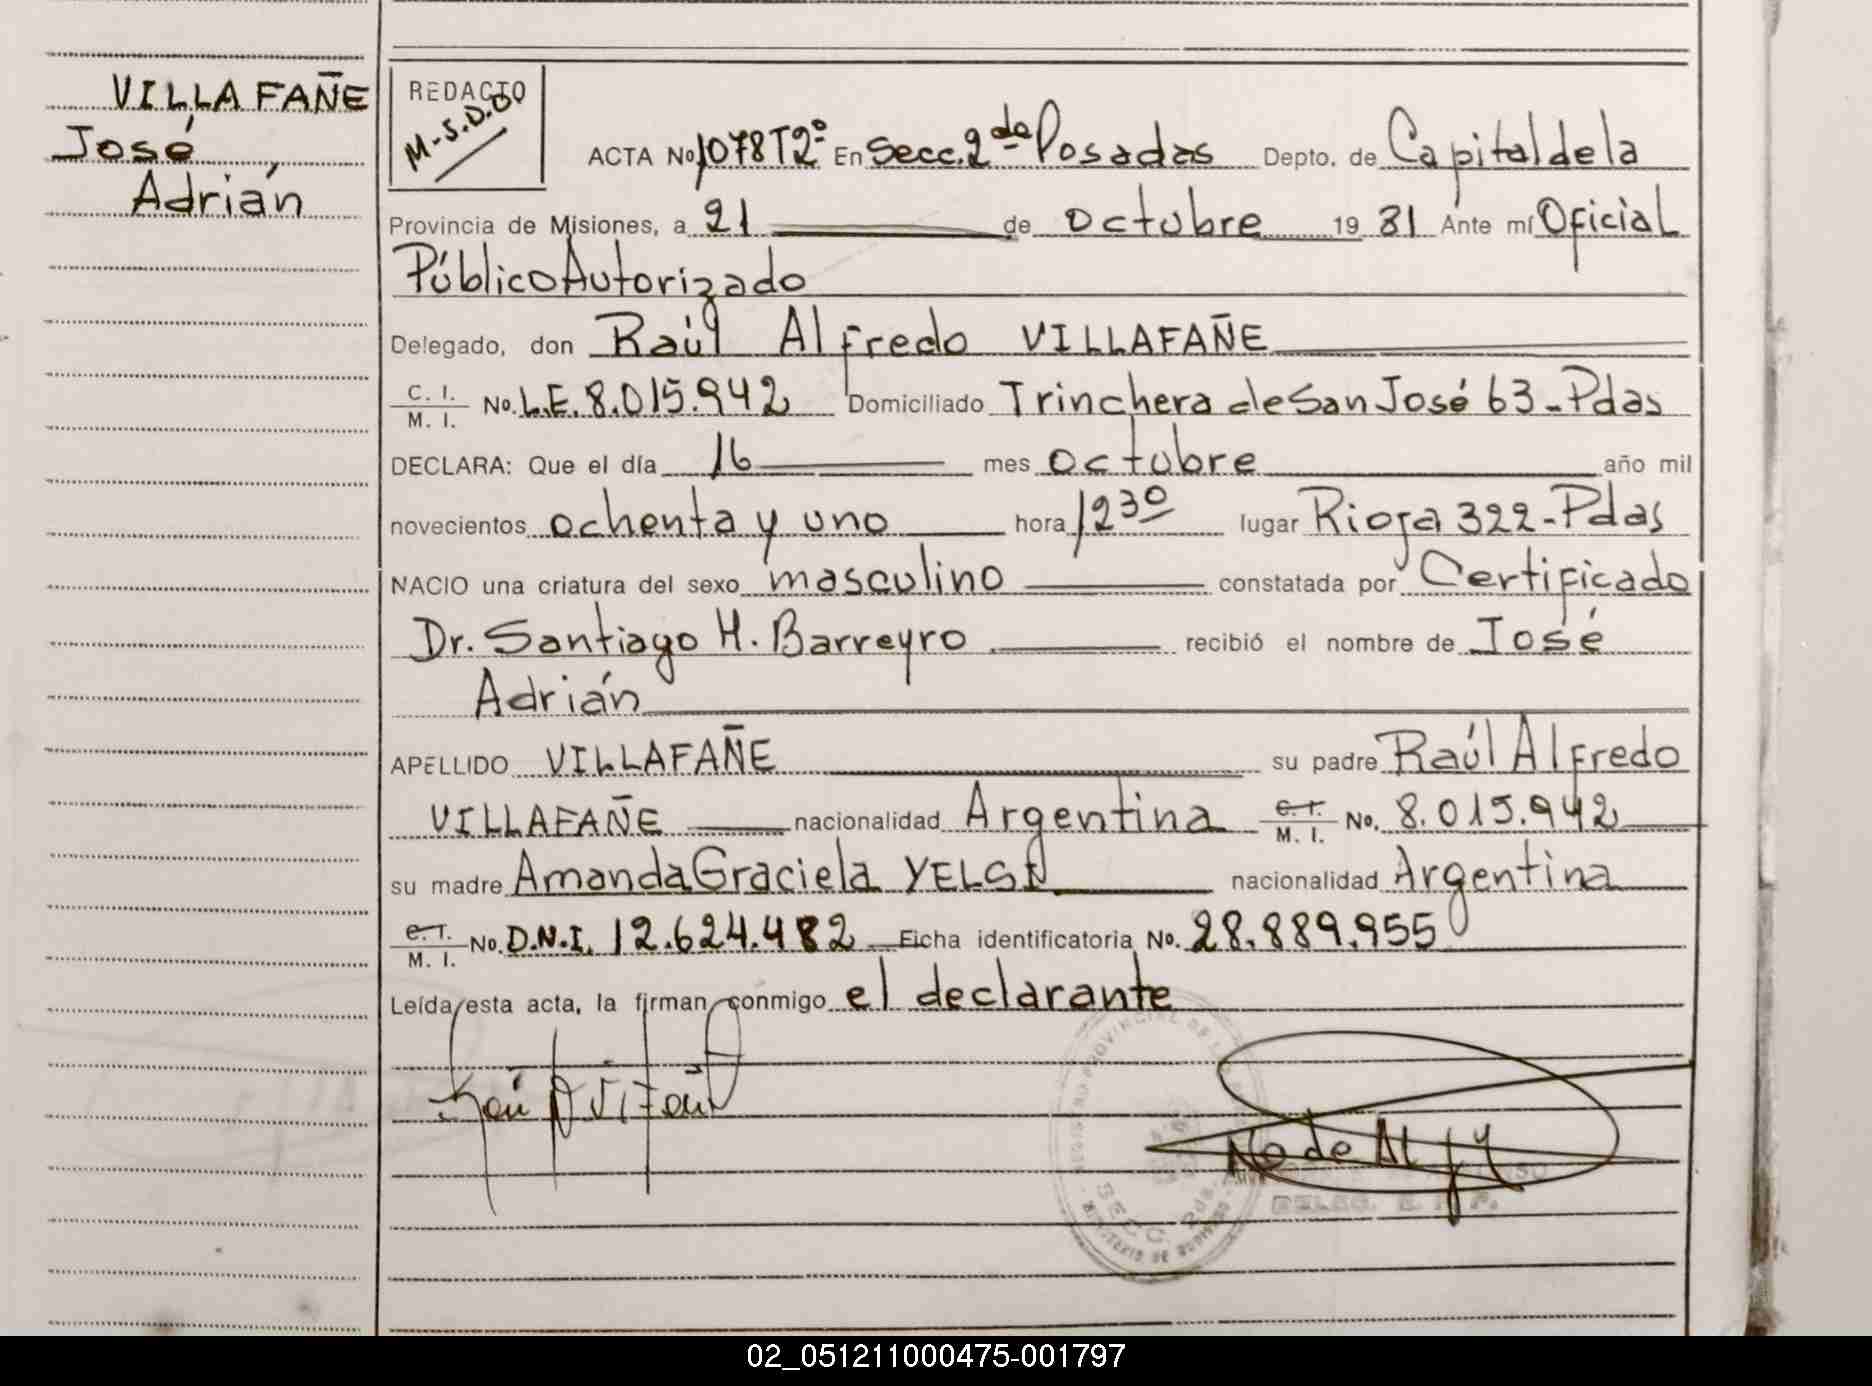 VILLAFAÑE
José
Adrián
REDACTO
M-S.D.O
ACTA No 1078 T2º En Secc. 2da Posadas Depto. de Capital de la
Provincia de Misiones, a 21 de octubre 19 81 Ante mí Oficial
Público Autorizado
Delegado, don Raúl Alfredo VILLAFAÑE
C. I.
M. I. No. L.E. 8.015.942 Domiciliado Trinchera de San José 63-Pdas
DECLARA: Que el día 16 mes octubre año mil
novecientos ochenta y uno hora 12 30 lugar Rioja 322-Pdas
NACIO una criatura del sexo masculino constatada por Certificado
Dr. Santiago H. Barreyro recibió el nombre de José
Adrián
APELLIDO VILLAFAÑE su padre Raúl Alfredo
VILLAFAÑE nacionalidad Argentina C. I. M. I. No. 8.015.942
su madre Amanda Graciela nacionalidad Argentina
C. I.
M. I. No. D.N.I. 12.624.482 Ficha identificatoria No. 28.889.955
Leída esta acta, la firman conmigo el declarante
REGISTRO PROVINCIAL DE
SECC. 2da.
MINISTERIO DE GOBIERNO
02_051211000475-001797